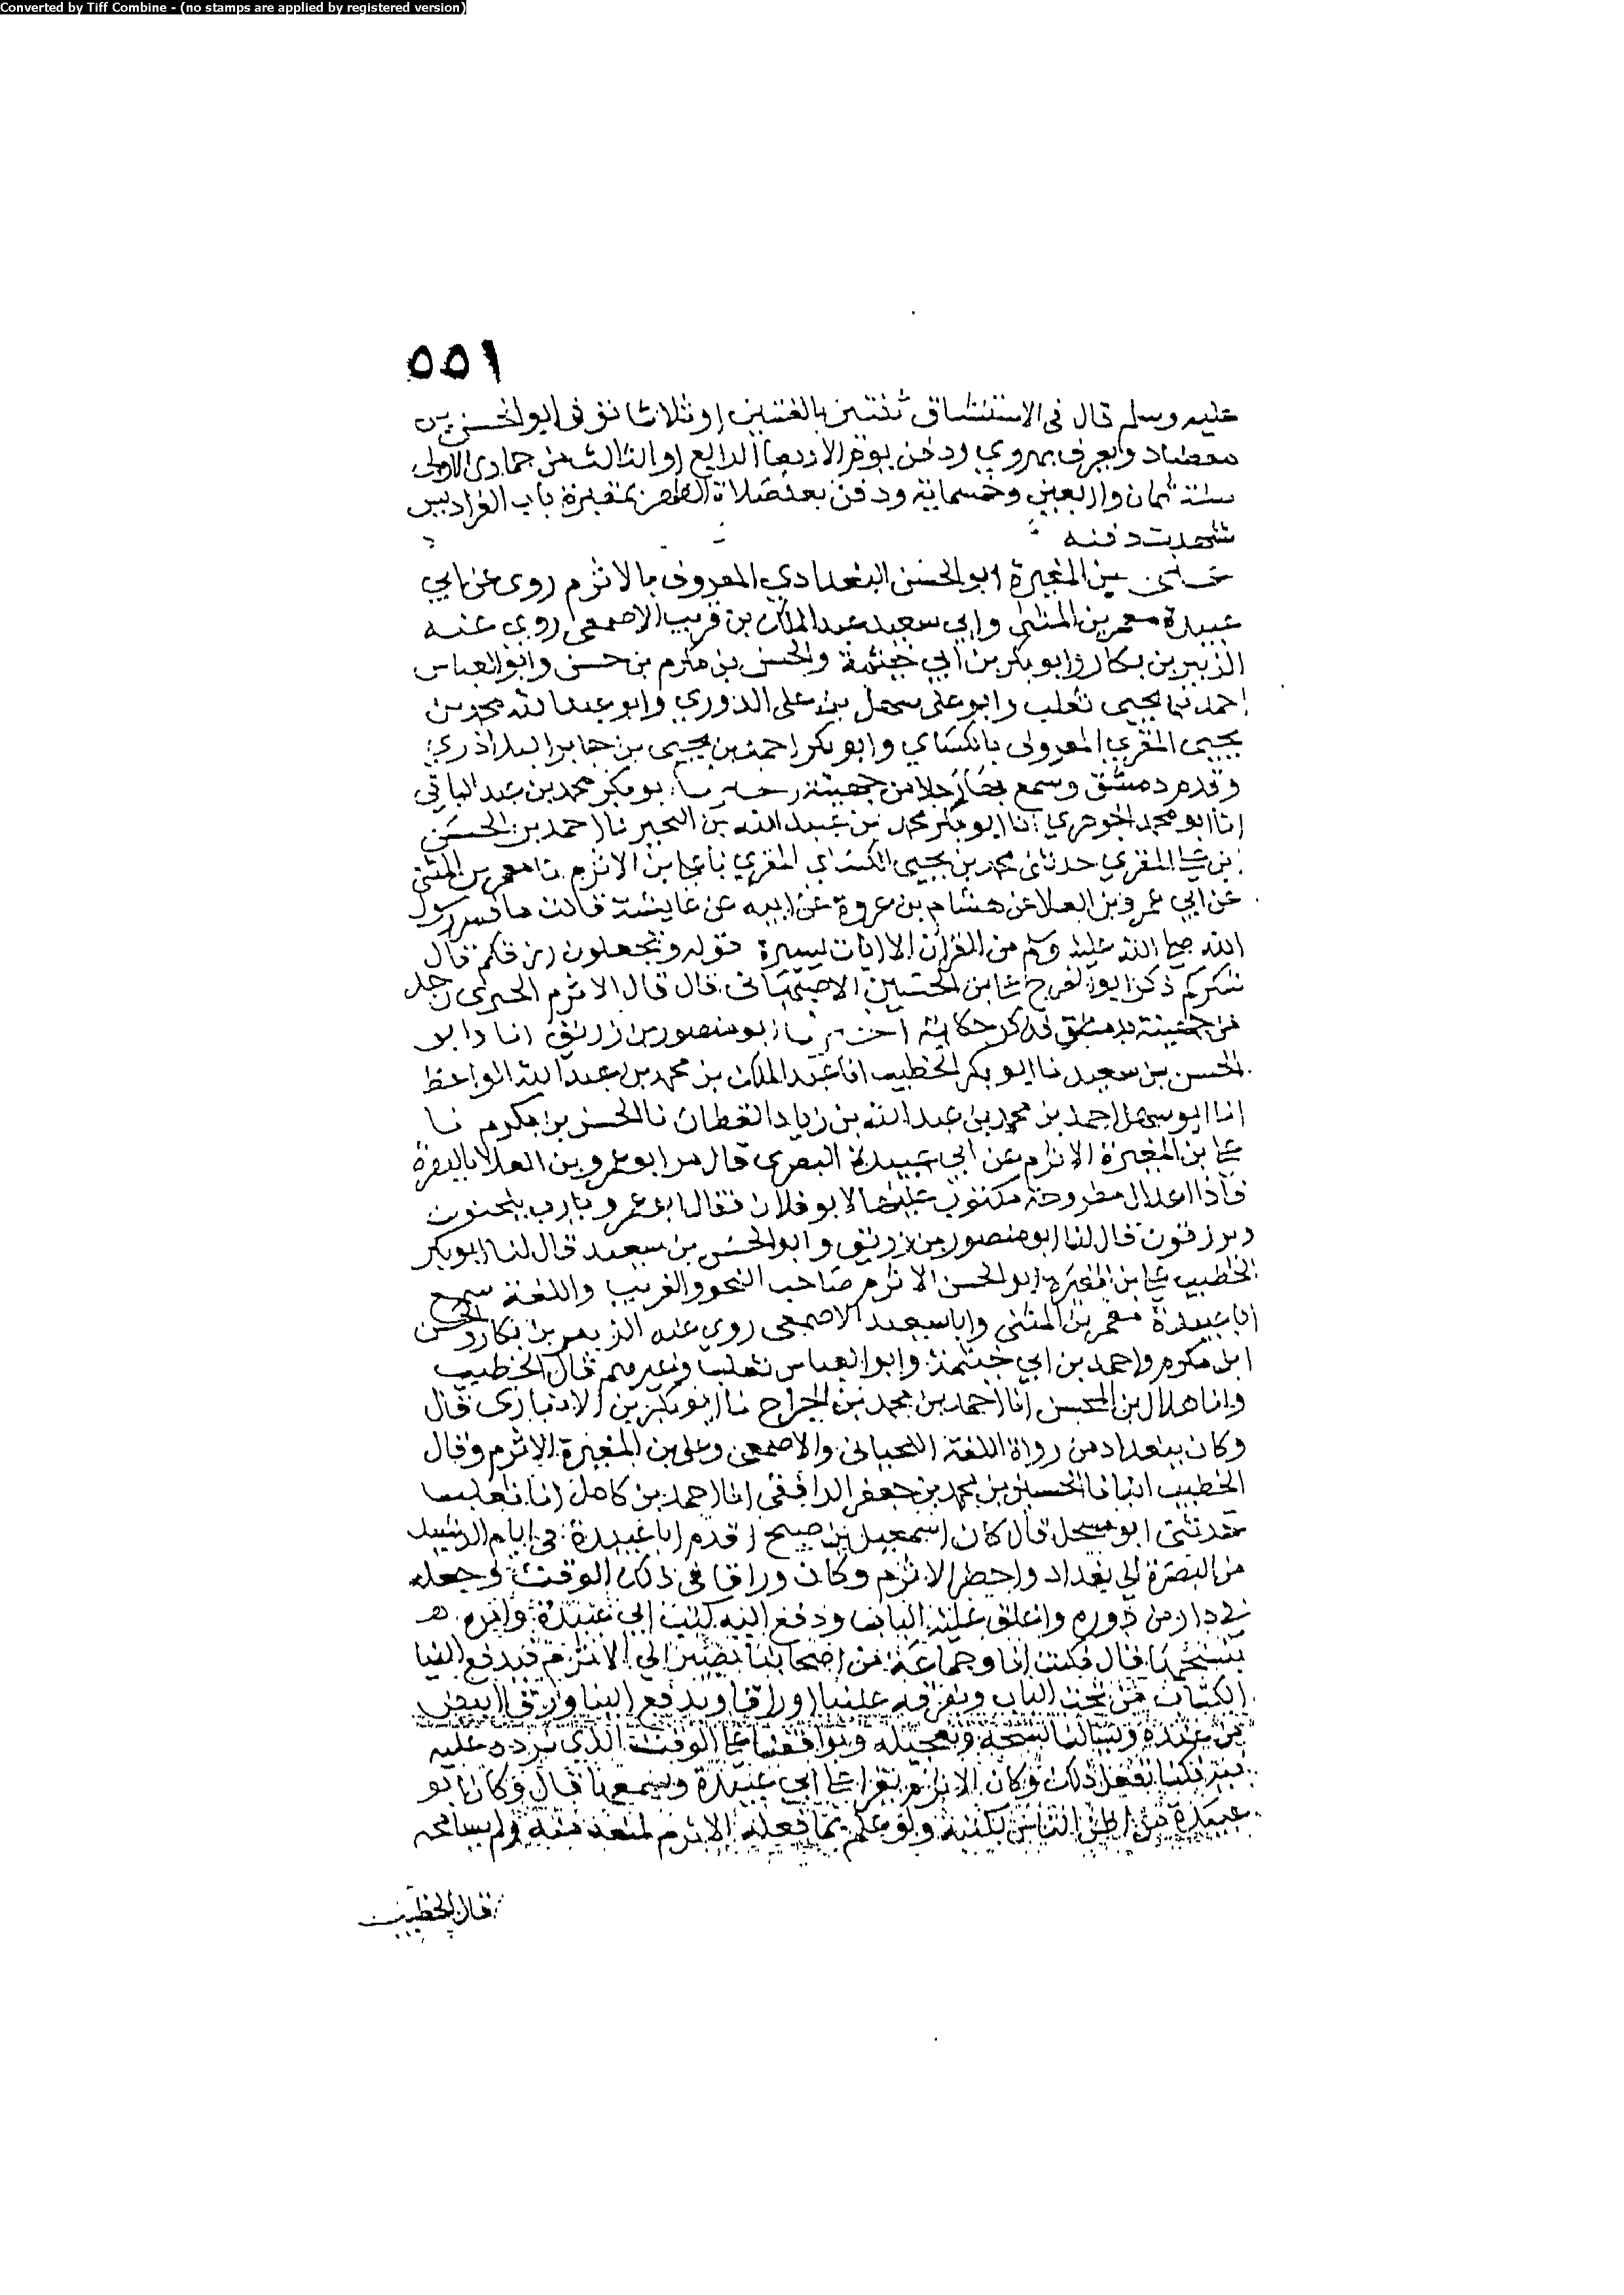 Converted by Tiff Combine - (no stamps are applied by registered version)
٥٥١
عليه وسلم قال في الاستنشاق ثنتين بالغتين او ثلاثا توفى ابو الحسن بن
معضاد ويعرف بمروي ودفن يوم الاربعا الرابع او الثالث من جمادى الاولى
سنة ثمان واربعين وخمسماية ودفن بعد صلاة الظهر بمقبرة باب الفراديس
شهدت دفنه
علي بن المغيرة ابو الحسن البغدادي المعروف بالاثرم روى عن ابي
عبيدة معمر بن المثنى وابي سعيد عبد الملك بن قريب الاصمعي روى عنه
الزبير بن بكار وابو بكر بن ابي خيثمة والحسن بن مكرم بن حسن وابو العباس
احمد بن يحيى ثعلب وابو علي سهل بن علي الدوري وابو عبد الله محمد بن
يحيى المقري المعروف بالكساي وابو بكر احمد بن يحيى بن جابر البلاذري
وقدم دمشق وسمع بها رجلا من جهينة اخبرنا ابو بكر محمد بن عبد الباقي
انا ابو محمد الجوهري انا ابو بكر محمد بن عبيد الله بن الشخير نا احمد بن الحسن
بن علي المقري حدثني محمد بن يحيى الكساي المقري نا علي بن الاثرم نا معمر بن المثنى
عن ابي عمرو بن العلا عن هشام بن عروة عن ابيه عن عايشة قالت ما فسر رسول
الله صلى الله عليه وسلم من القران الا ايات يسيرة قوله وتجعلون رزقكم قال
شكركم ذكر ابو الفرج علي بن الحسين الاصبهاني قال قال الاثرم اخبرني رجل
من جهينة بدمشق فذكر حكاية اخبرنا ابو منصور بن زريق انا وابو
الحسن بن سعيد نا ابو بكر الخطيب انا عبد الملك بن محمد بن عبد الله الواعظ
انا ابو سهل احمد بن محمد بن عبد الله بن زياد القطان نا الحسن بن مكرم نا
علي بن المغيرة الاثرم عن ابي عبيدة البصري قال مر ابو عمرو بن العلا بالبصرة
فاذا اعدال مطروحة مكتوب عليها لابو فلان فقال ابو عمرو يا رب يلحنون
ويرزقون قال لنا ابو منصور بن زريق وابو الحسن بن سعيد قال لنا ابو بكر
الخطيب علي بن المغيرة ابو الحسن الاثرم صاحب النحو والغريب واللغة سمع
ابا عبيدة معمر بن المثنى وابا سعيد الاصمعي روى عنه الزبير بن بكار والحسن
ابن مكرم واحمد بن ابي خيثمة وابو العباس ثعلب وغيرهم قال الخطيب
وانا هلال بن المحسن انا احمد بن محمد بن الجراح نا ابو بكر بن الانباري قال
وكان ببغداد من رواة اللغة اللحياني والاصمعي وعلي بن المغيرة الاثرم وقال
الخطيب انبانا الحسين بن محمد بن جعفر الرافقي انا احمد بن كامل انا ثعلب
حدثني ابو مسحل قال كان اسمعيل بن صبيح اقدم ابا عبيدة في ايام الرشيد
من البصرة الى بغداد واحضر الاثرم وكان وراقا في ذلك الوقت وجعله
في دار من دوره واغلق عليه الباب ودفع اليه كتب ابي عبيدة وامره
بنسخها قال فكنت انا وجماعة من اصحابنا نصير الى الاثرم فيدفع الينا
الكتاب من تحت الباب ويفرقه علينا اوراقا ويدفع الينا ورقا ابيض
من عنده ويسالنا نسخه وتعجيله ويوافقنا على الوقت الذي نرده عليه
فيه فكنا نفعل ذلك وكان الاثرم يقرا على ابي عبيدة ويسمعها قال وكان ابو
عبيدة من اظن الناس بكتبه ولو علم بما فعله الاثرم لمنعه منه ولم يسامحه
قال الخطيب